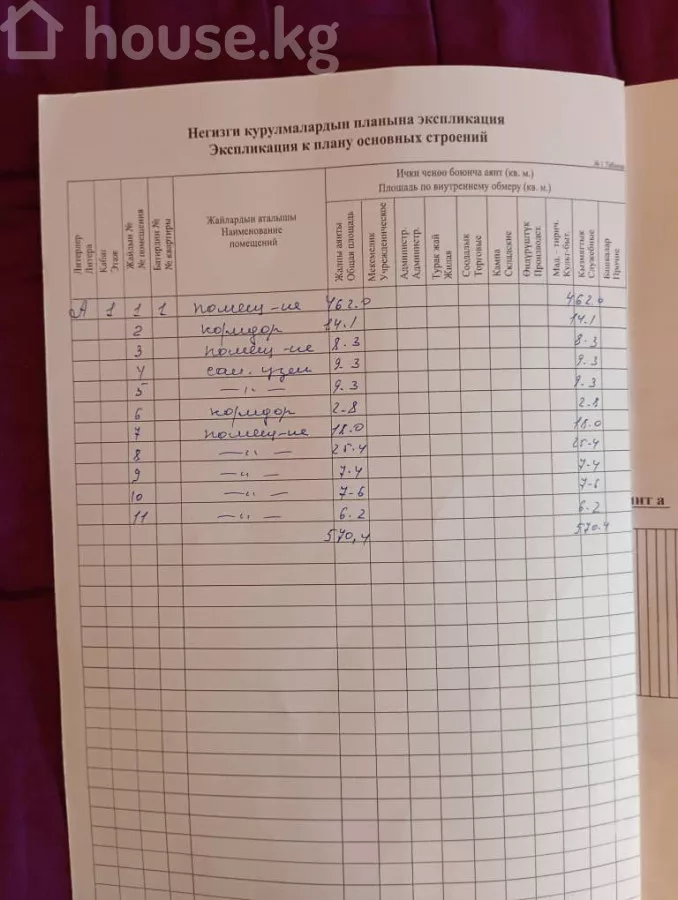 house.kg
Негизги курулмалардын планына экспликация
Экспликация к плану основных строений
№ 1 Таблица
Литерлер
Литера
Кабат
Этаж
Жайдын №
№ помещения
Батирдин №
№ квартиры
Жайлардын аталышы
Наименование
помещений
Ички ченөө боюнча аянт (кв. м.)
Площадь по внутреннему обмеру (кв. м.)
Жалпы аянты
Общая площадь
Мекемелик
Учрежденческое
Администр.
Администр.
Турак жай
Жилая
Соодалык
Торговые
Кампа
Складские
Өндүрүштүк
Производст.
Мад. - тирич.
Культ-быт.
Кызматтык
Служебные
Башкалар
Прочие
А 1 1 1 помещ-ие 462.0 462.0
2 коридор 14.1 14.1
3 помещ-ие 8.3 8.3
4 сан. узел 9.3 9.3
5 —"— 9.3 9.3
6 коридор 2-8 2-8
7 помещ-ие 18.0 18.0
8 —"— 25.4 25-4
9 —"— 7-4 7-4
10 —"— 7-6 7-6
11 —"— 6.2 6.2
570,4 570.4
нт а